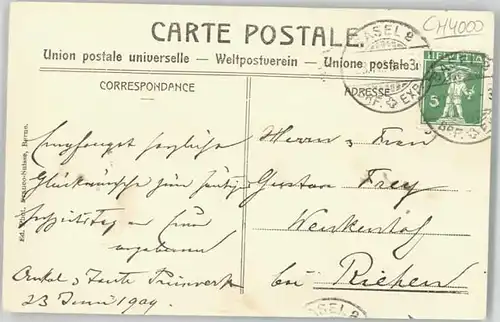 CARTE POSTALE.
Union postale universelle — Weltpostverein — Unione postale
CORRESPONDANCE
ADRESSE
CH4000
BASEL 2
EXP.
HELVETIA
5
Empfanget herzliche
Glückwünsche zum heutigen
Hochzeitstag von Euren
ergebenen
Onkel & Tante
23 Juni 1909
Herrn & Frau
Gustav Frey
Wenkenhof
bei Riehen